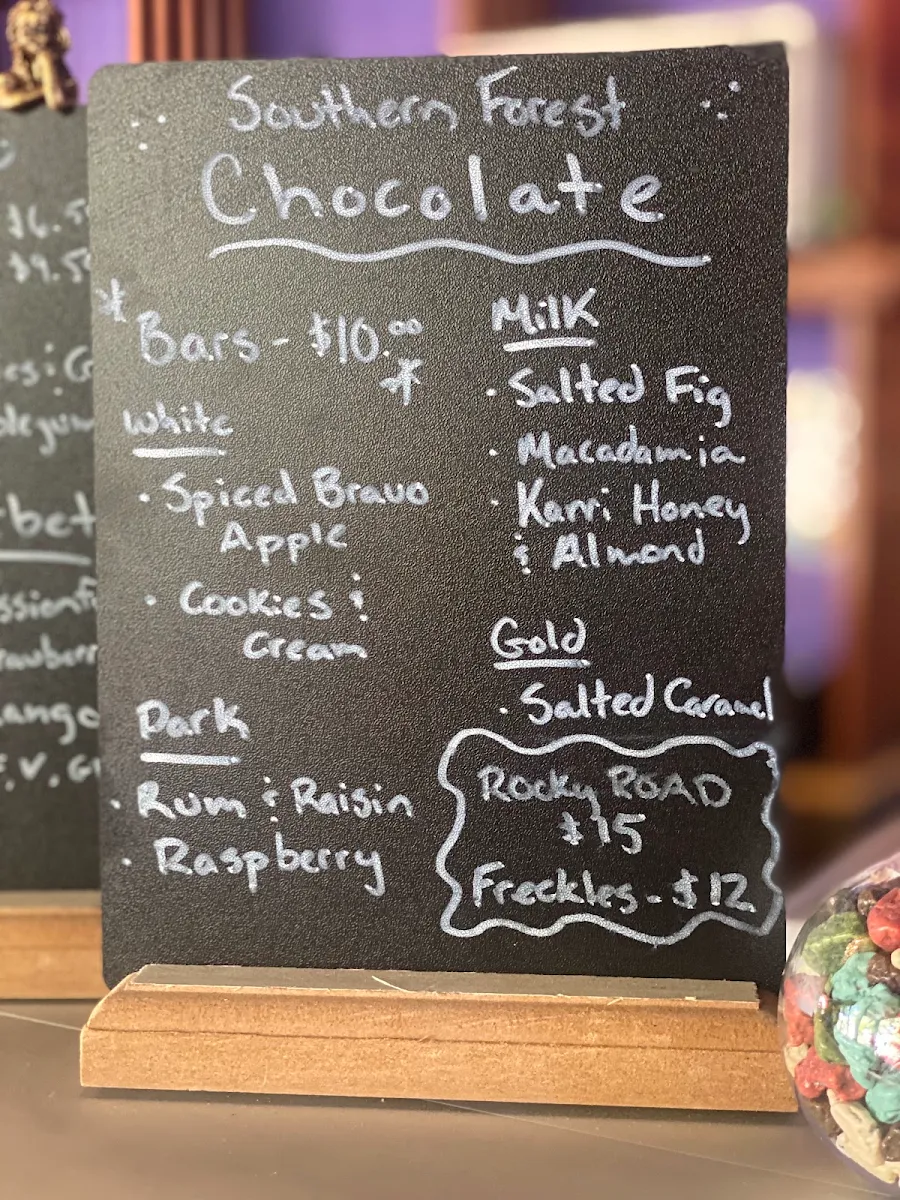 Southern Forest
Chocolate
* Bars - $10.00 *
White
· Spiced Bravo
Apple
· Cookies &
Cream
Dark
· Rum & Raisin
· Raspberry
Milk
· Salted Fig
· Macadamia
· Karri Honey
& Almond
Gold
· Salted Caramel
Rocky ROAD
$15
Freckles - $12
$9.5